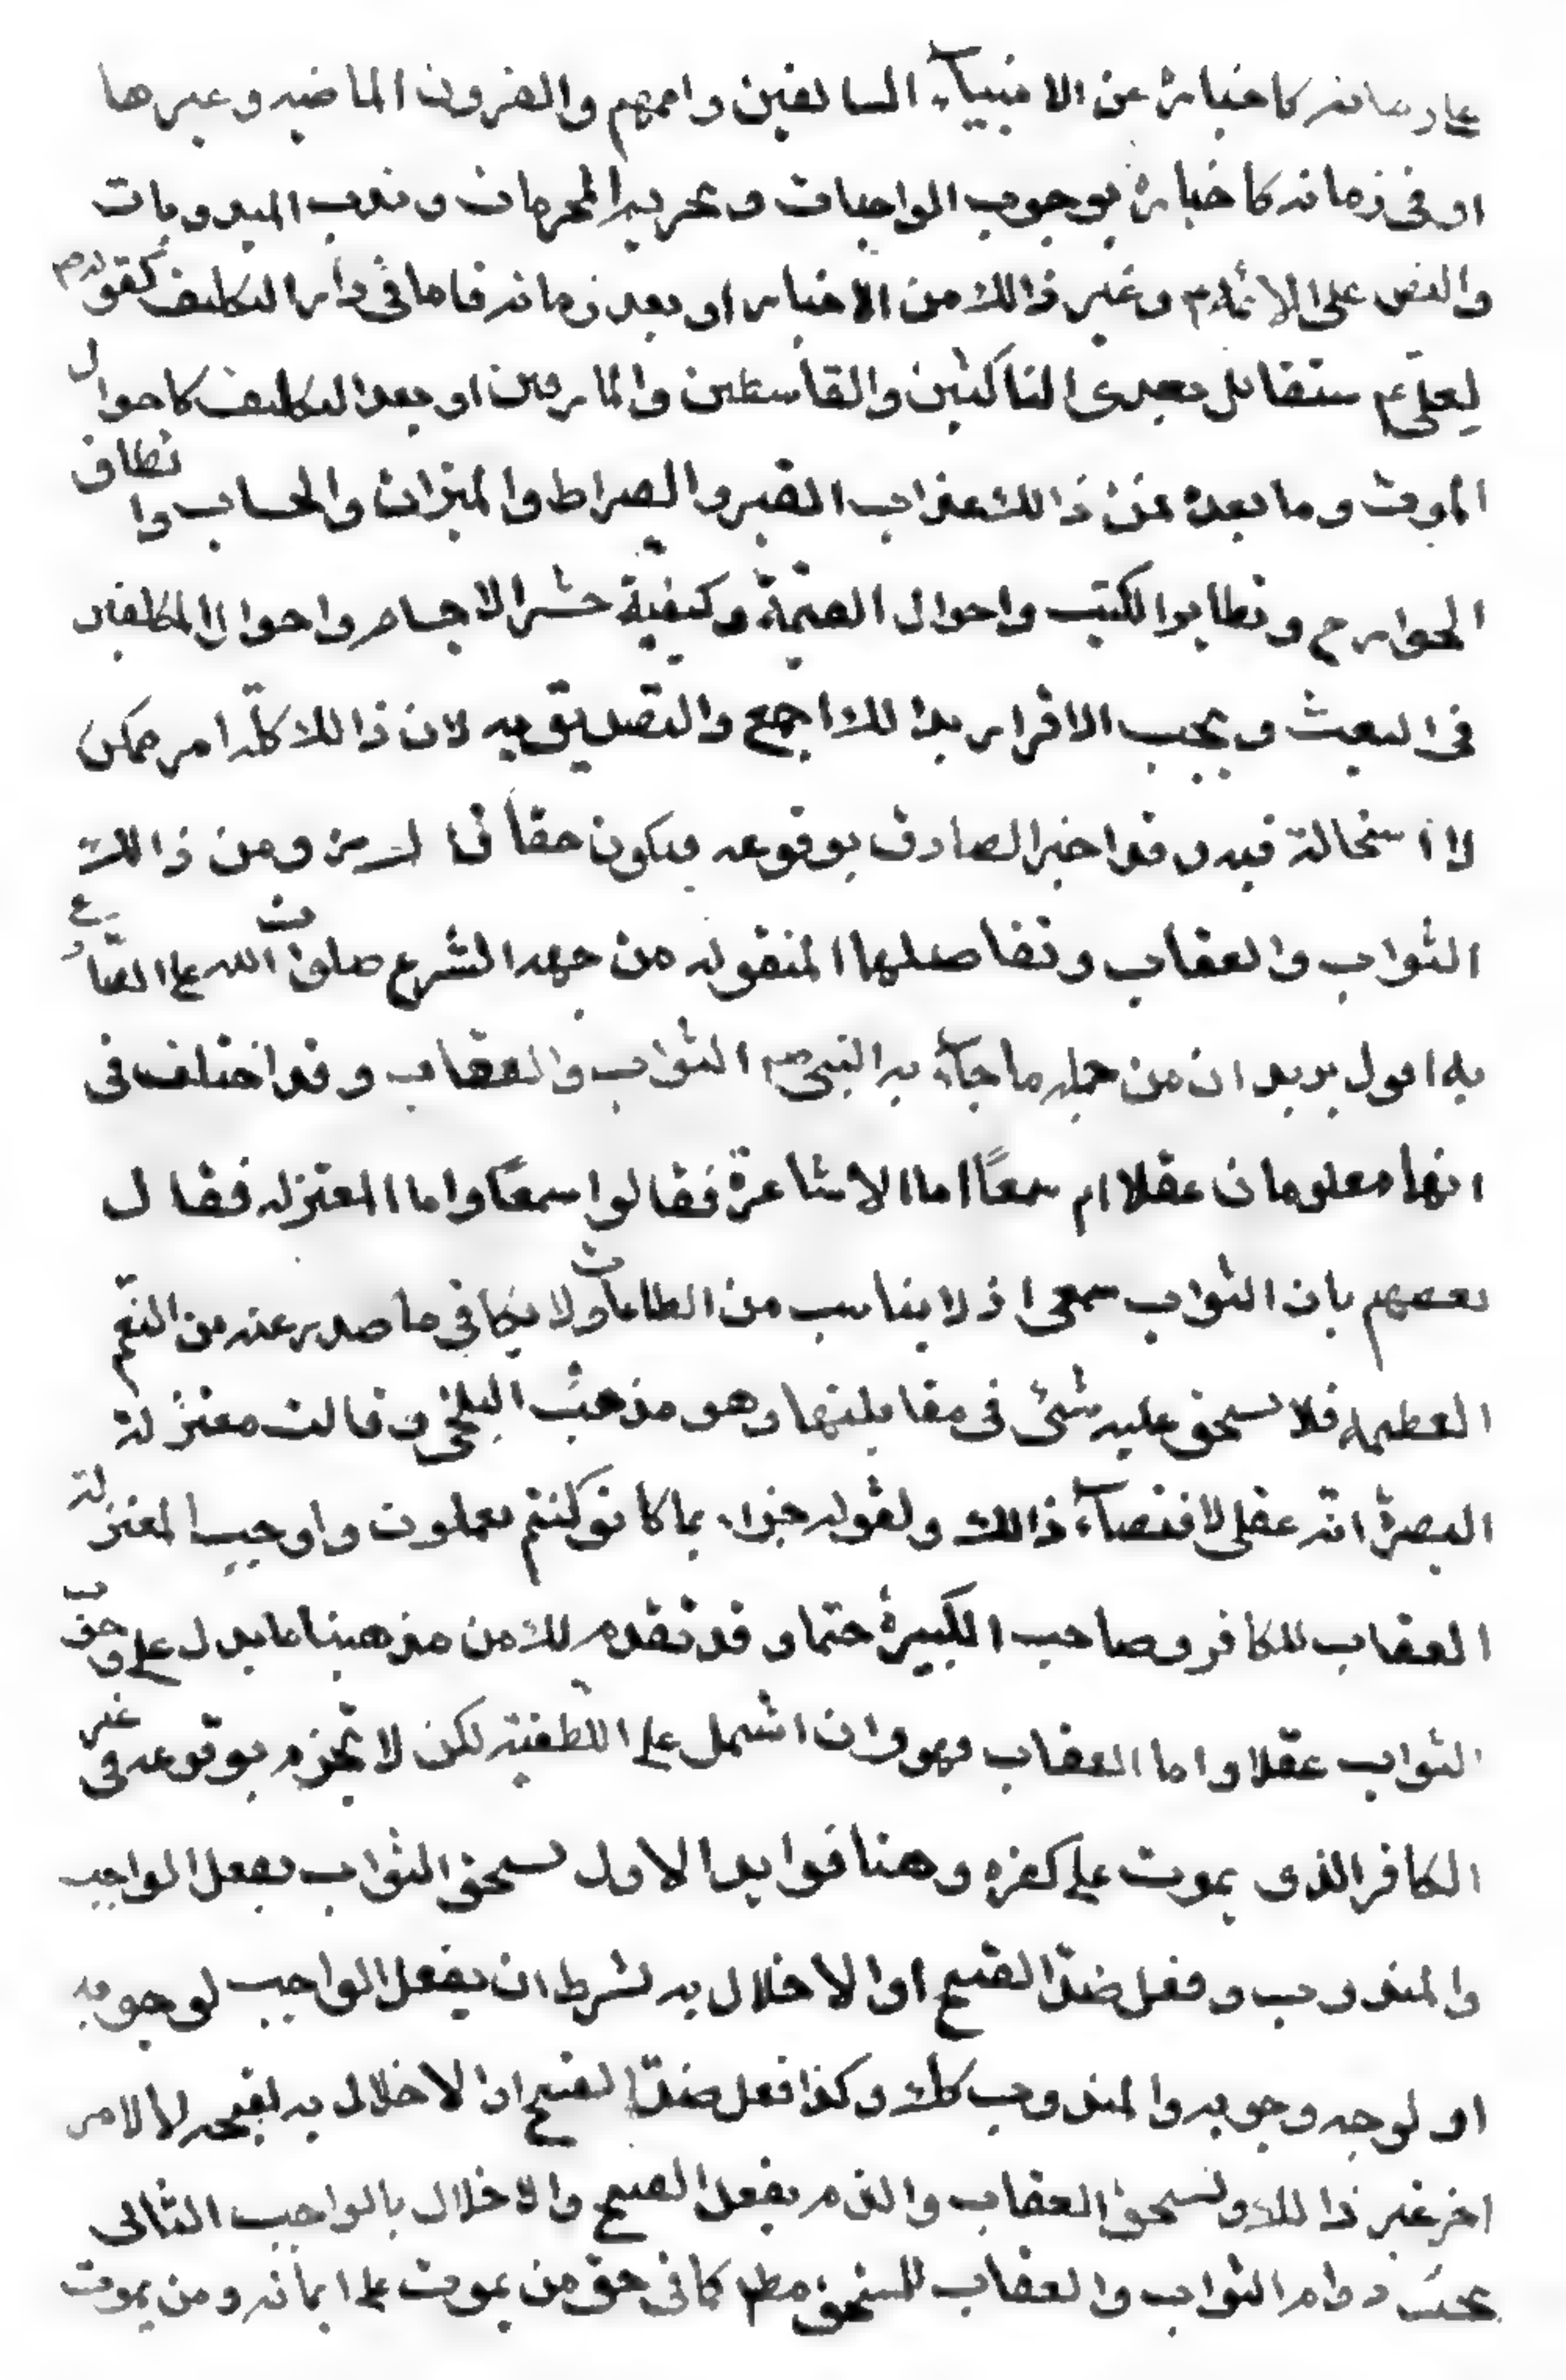 على زمانه كاخباره عن الانبيآء السالفين واممهم والقرون الماضيه وغيرها
او فى زمانه كاخباره بوجوب الواجبات وتحريم المحرمات وندب المندوبات
والنص على الائمه م وغير ذالك من الاخبار او بعد زمانه فاما فى دار التكليف كقوله ص
لعلى م ستقاتل بعدى الناكثين والقاسطين والمارقين او بعد التكليف كاحوال
الموت وما بعده فمن ذالك عذاب القبر والصراط والميزان والحساب وانطاق
الجوارح وتطاير الكتب واحوال القيمة وكيفية حشر الاجسام واحوال المكلفين
فى البعث ويجب الاقرار بذالك اجمع والتصديق به لان ذالك كله امر ممكن
لا استحالة فيه وقد اخبر الصادق بوقوعه فيكون حقا قال ومن ذالك
الثواب والعقاب وتفاصيلهما المنقوله من جهه الشرع صلوات الله على الصادع
به اقول يريد ان من جمله ما جآء به النبى ص الثواب والعقاب وقد اختلف فى
انهما معلومان عقلا ام سمعًا اما الاشاعرة فقالوا سمعًا واما المعتزله فقال
بعضهم بان الثواب سمعى اذ لا يناسب من الطاعات ولا يكافى ما صدر عنه من النعم
العظيمه فلا يستحق عليه شئ فى مقابلتها وهو مذهب البلخى وقالت معتزلة
البصرة انه عقلى لاقتضآء ذالك ولقوله جزاء بما كانو كنتم تعملون واوجب المعتزلة
العقاب للكافر وصاحب الكبيرة حتما وقد تقدم لك من مذهبنا ما يدل على وجوب حق
الثواب عقلا واما العقاب فهو وان اشتمل على اللطفية لكن لا نجزم بوقوعه فى غير
الكافر الذى يموت على كفره وهنا فوايد الاول يستحق الثواب بفعل الواجب
والمندوب وفعل ضد القبيح او الاخلال به بشرط ان يفعل الواجب لوجوبه
او لوجه وجوبه والمندوب كك وكذا فعل ضد القبيح او الاخلال به لقبحه لا لامر
اخر غير ذالك ويستحق العقاب والذم بفعل القبيح والاخلال بالواجب الثانى
يجب دوام الثواب والعقاب للمستحق مطلقا كما فى حق من يموت على ايمانه ومن يموت